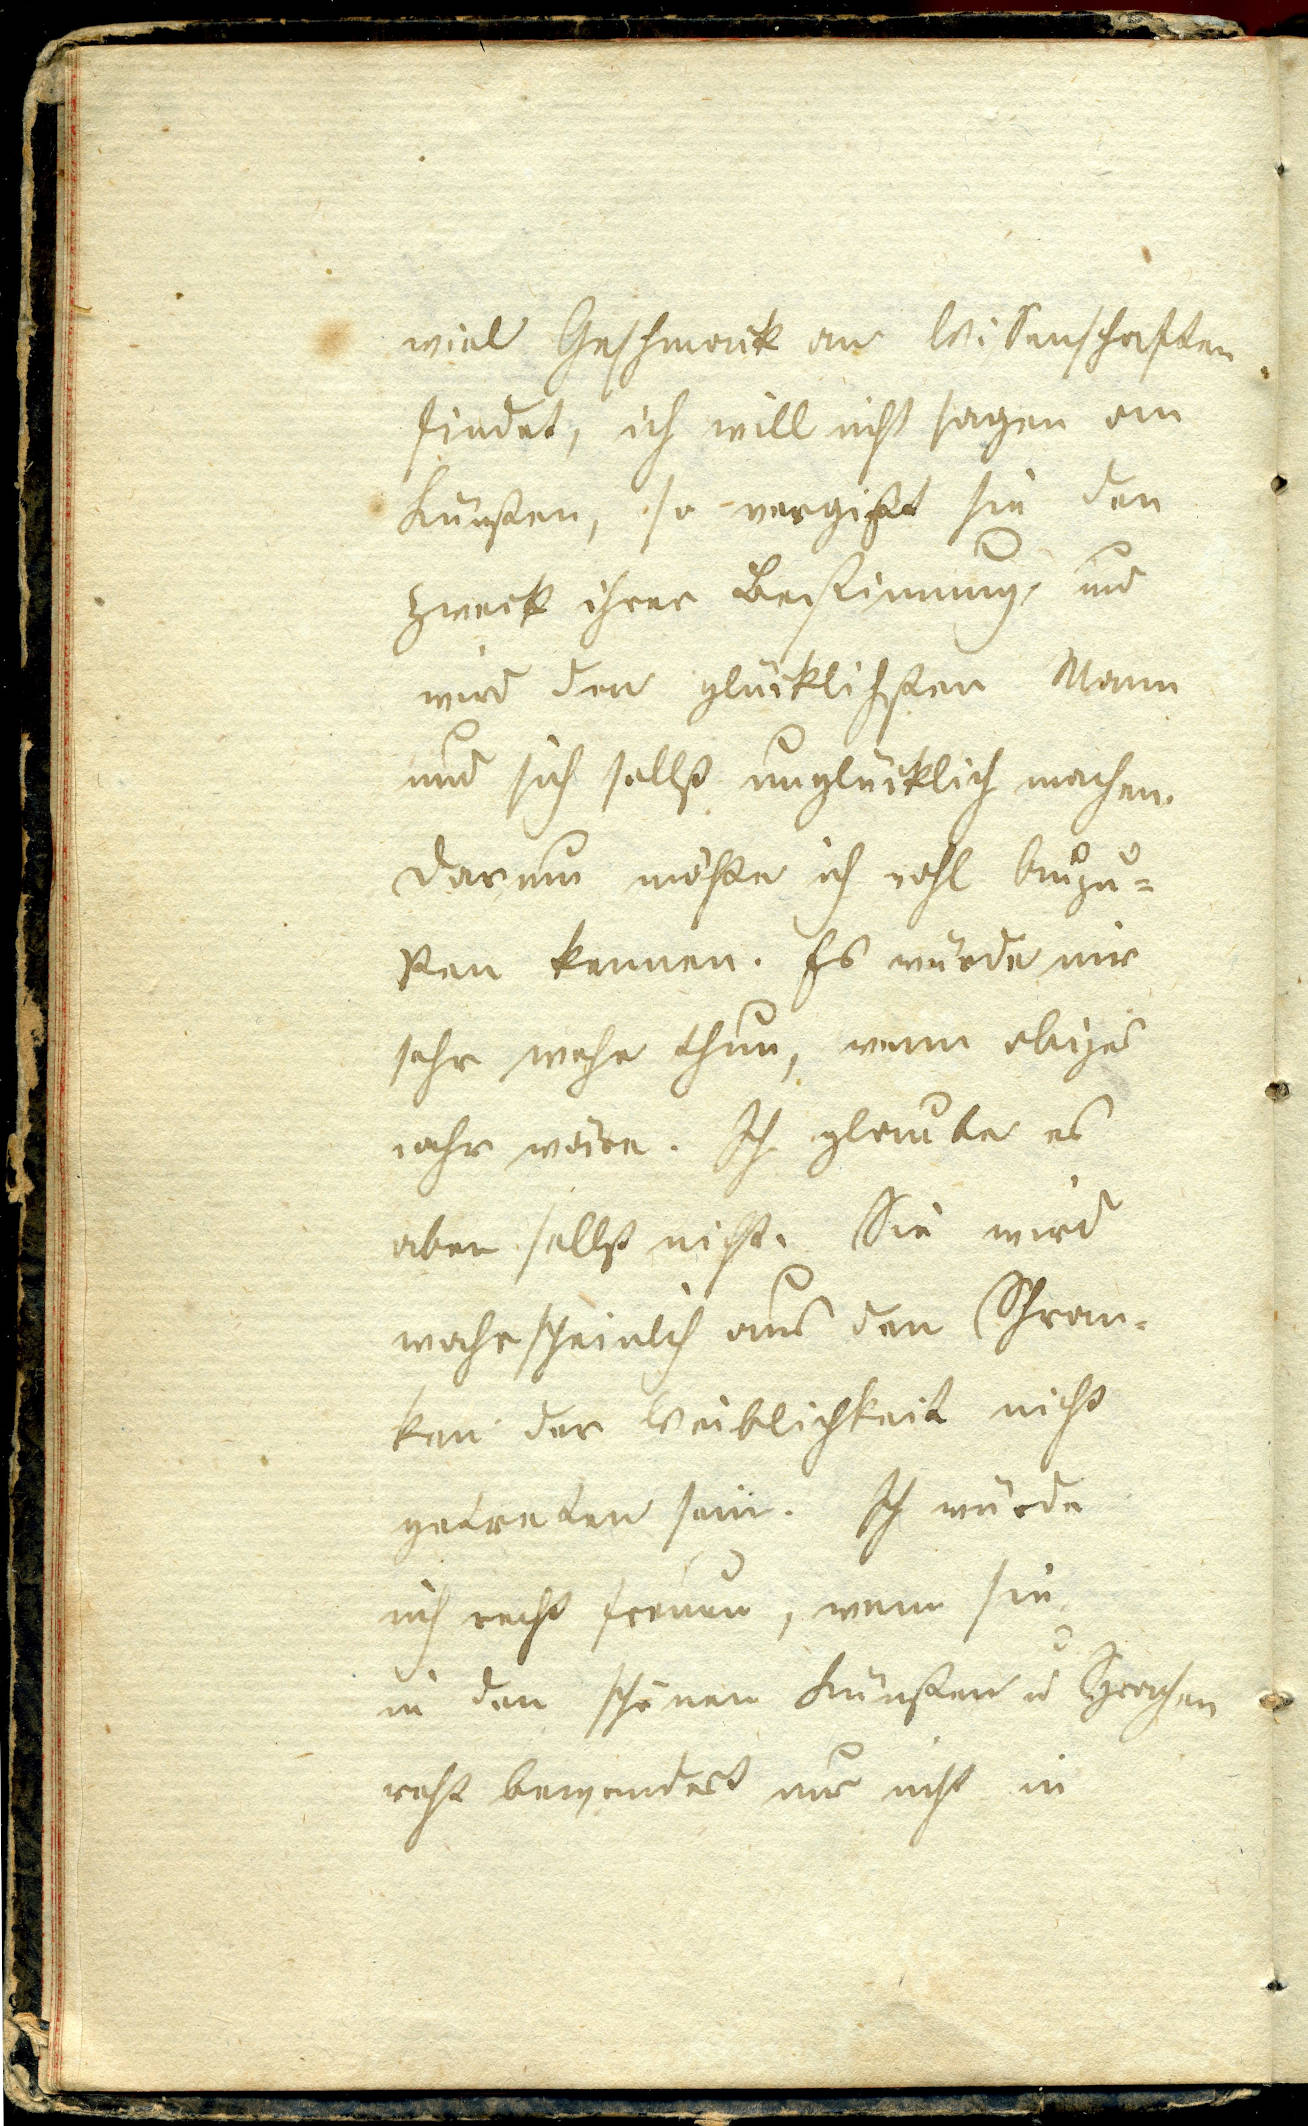 viel Geschmack an Wißenschaften
findet, ich will nicht sagen an
Künsten, so vergißt sie den
Zweck ihrer Bestimmung, und
wird den glücklichsten Mann
und sich selbst unglücklich machen.
Darum möchte ich wohl
kennen. Es würde mir
sehr wehe thun, wenn obiges
wahr wäre. Ich glaube es
aber selbst nicht. Sie wird
wahrscheinlich aus den Schran-
ken der Weiblichkeit nicht
getreten sein. Ich würde
mich recht freuen, wenn sie
in den schönen Künsten u Sprachen
recht bewandert nur nicht in